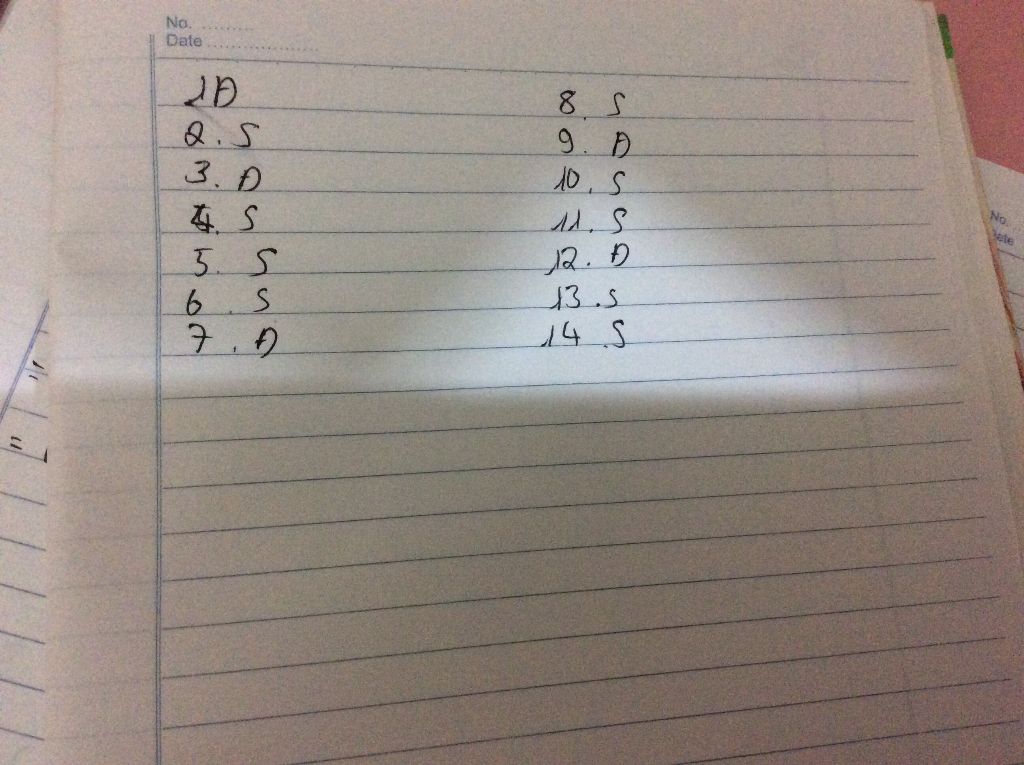 No. ..........
Date ...................
1 Đ
2. S
3. Đ
4. S
5. S
6. S
7. Đ
8. S
9. Đ
10. S
11. S
12. Đ
13. S
14. S
No.
=